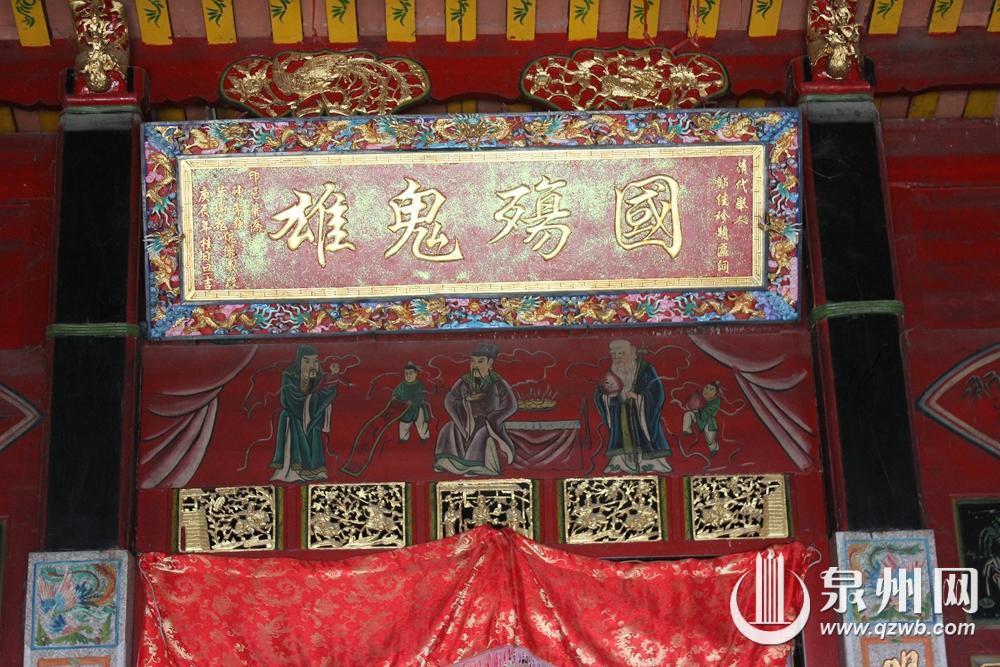 國殤鬼雄
清代舉人
鄭佳珍題匾詞
庚辰年桂月旦吉
泉州网
www.qzwb.com